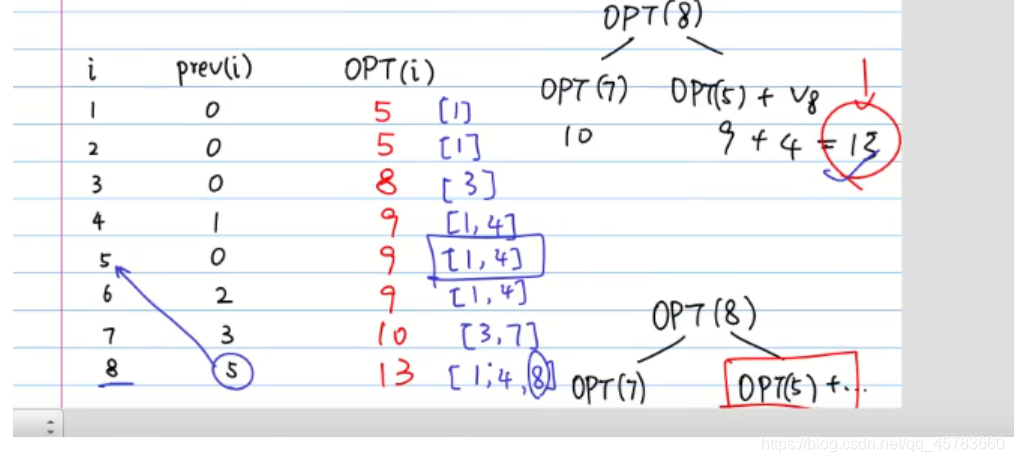 OPT(8)
i prev(i) OPT(i)
OPT(7) OPT(5) + v8
1 0 5 [1]
10 9 + 4 = 13
2 0 5 [1]
3 0 8 [3]
4 1 9 [1,4]
5 0 9 [1,4]
6 2 9 [1,4]
OPT(8)
7 3 10 [3,7]
8 5 13 [1,4,8]
OPT(7) OPT(5) +...
https://blog.csdn.net/qq_45783660